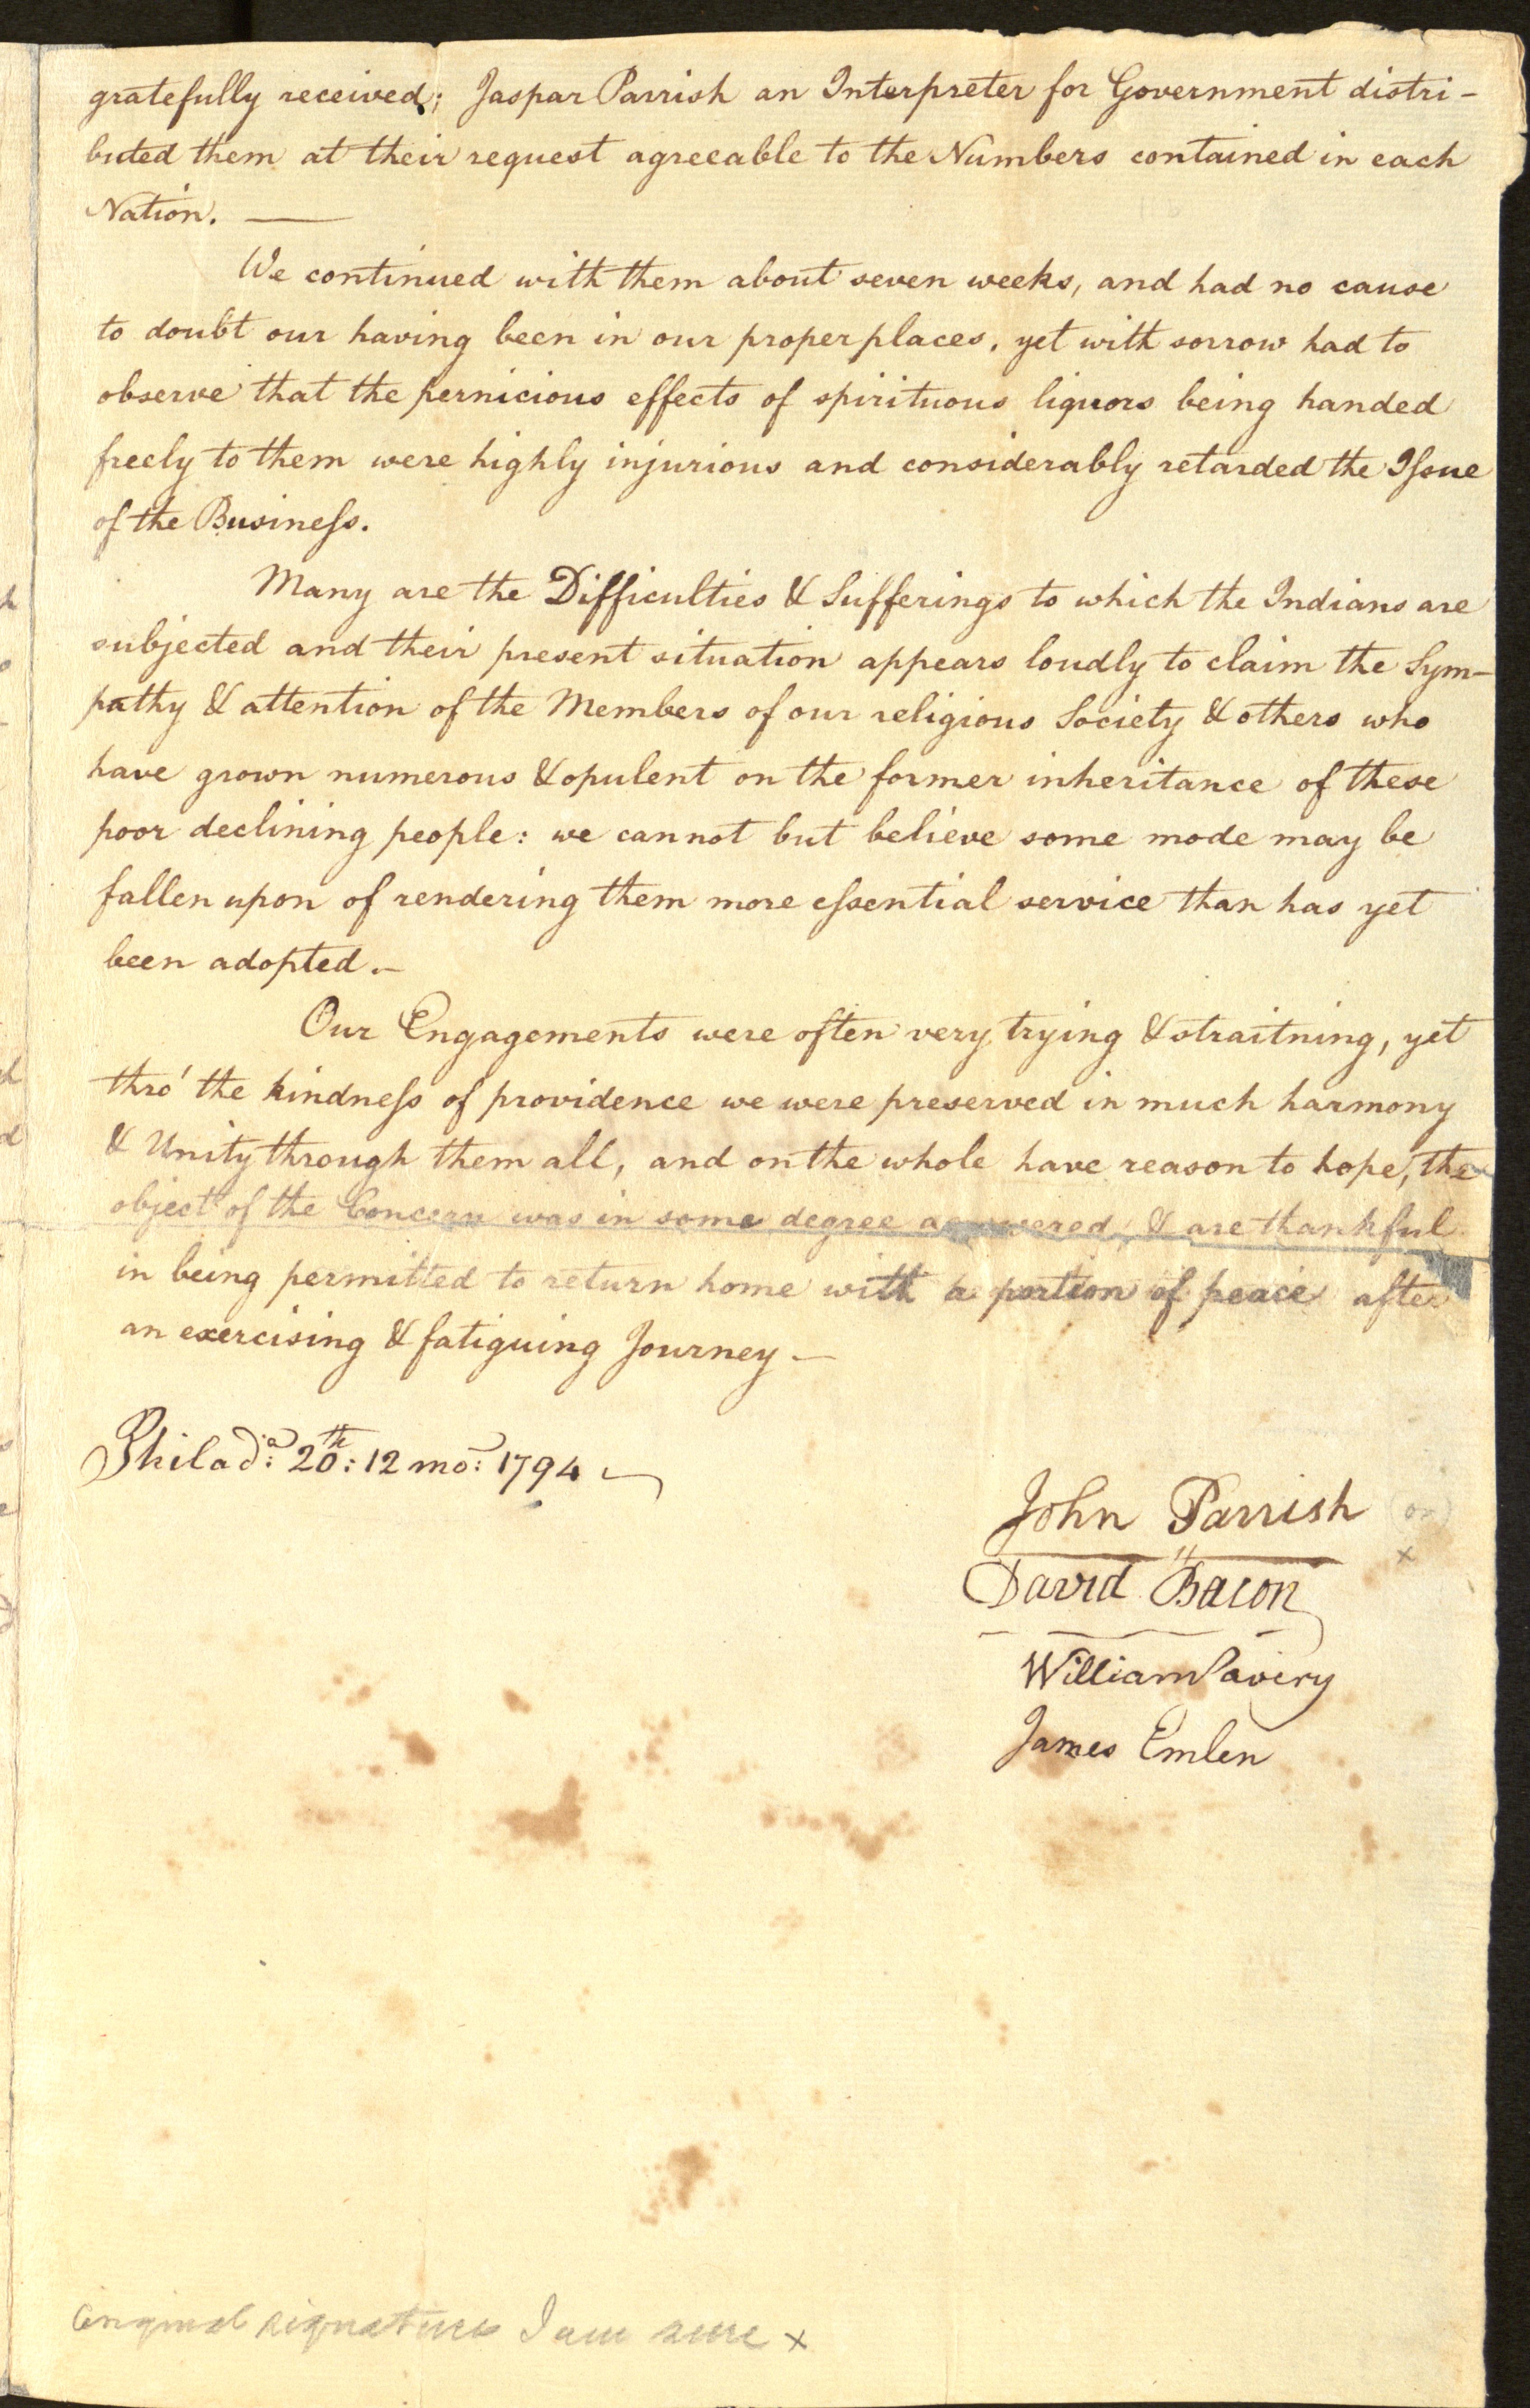 gratefully received; Jaspar Parrish an Interpreter for Government distri-
buted them at their request agreeable to the Numbers contained in each
Nation. —
We continued with them about seven weeks, and had no cause
to doubt our having been in our proper places, yet with sorrow had to
observe that the pernicious effects of spirituous liquors being handed
freely to them were highly injurious and considerably retarded the Issue
of the Business.
Many are the Difficulties & Sufferings to which the Indians are
subjected and their present situation appears loudly to claim the Sym-
pathy & attention of the Members of our religious Society & others who
have grown numerous & opulent on the former inheritance of these
poor declining people: we cannot but believe some mode may be
fallen upon of rendering them more essential service than has yet
been adopted.—
Our Engagements were often very trying & straitning, yet
thro' the kindness of providence we were preserved in much harmony
& Unity through them all, and on the whole have reason to hope, the
object of the Concern was in some degree answered & are thankful
in being permitted to return home with a portion of peace after
an exercising & fatiguing Journey —
Philada: 20th: 12 mo: 1794
John Parrish (on)
x
David Bacon
William Savery
James Emlen
Original signatures I am sure x